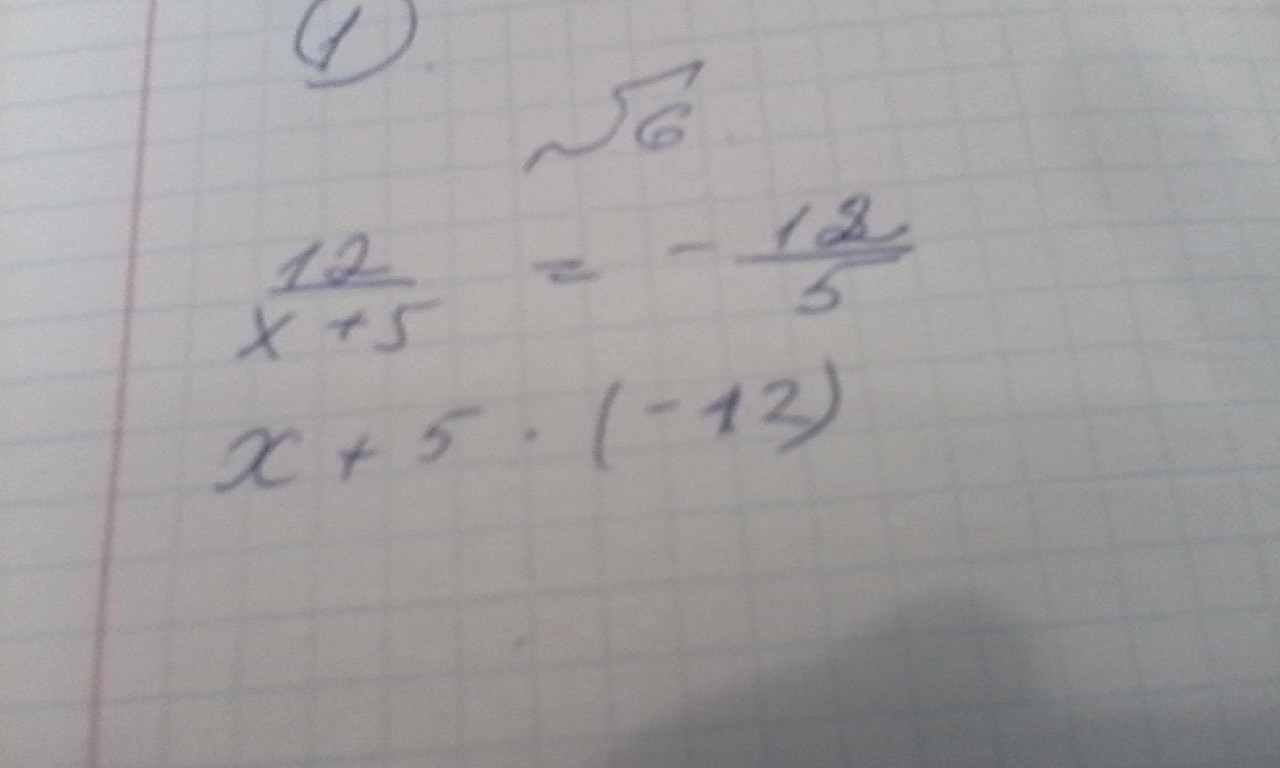 1
√6
12/(x+5) = -12/5
x + 5 · (-12)